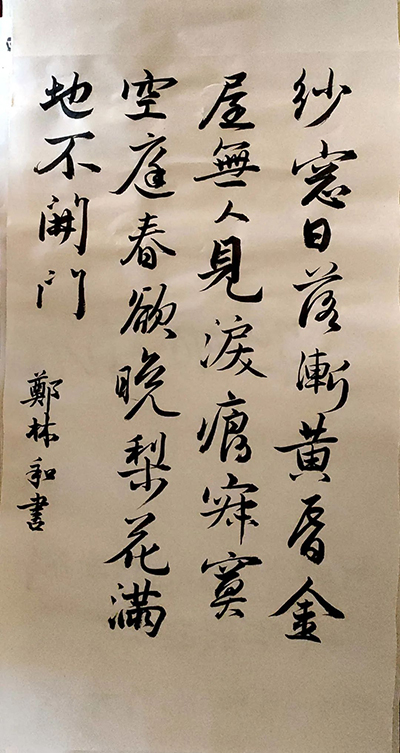 紗窓日落漸黃昏金
屋無人見淚痕寂寞
空庭春欲晚梨花滿
地不開門
鄭林和書